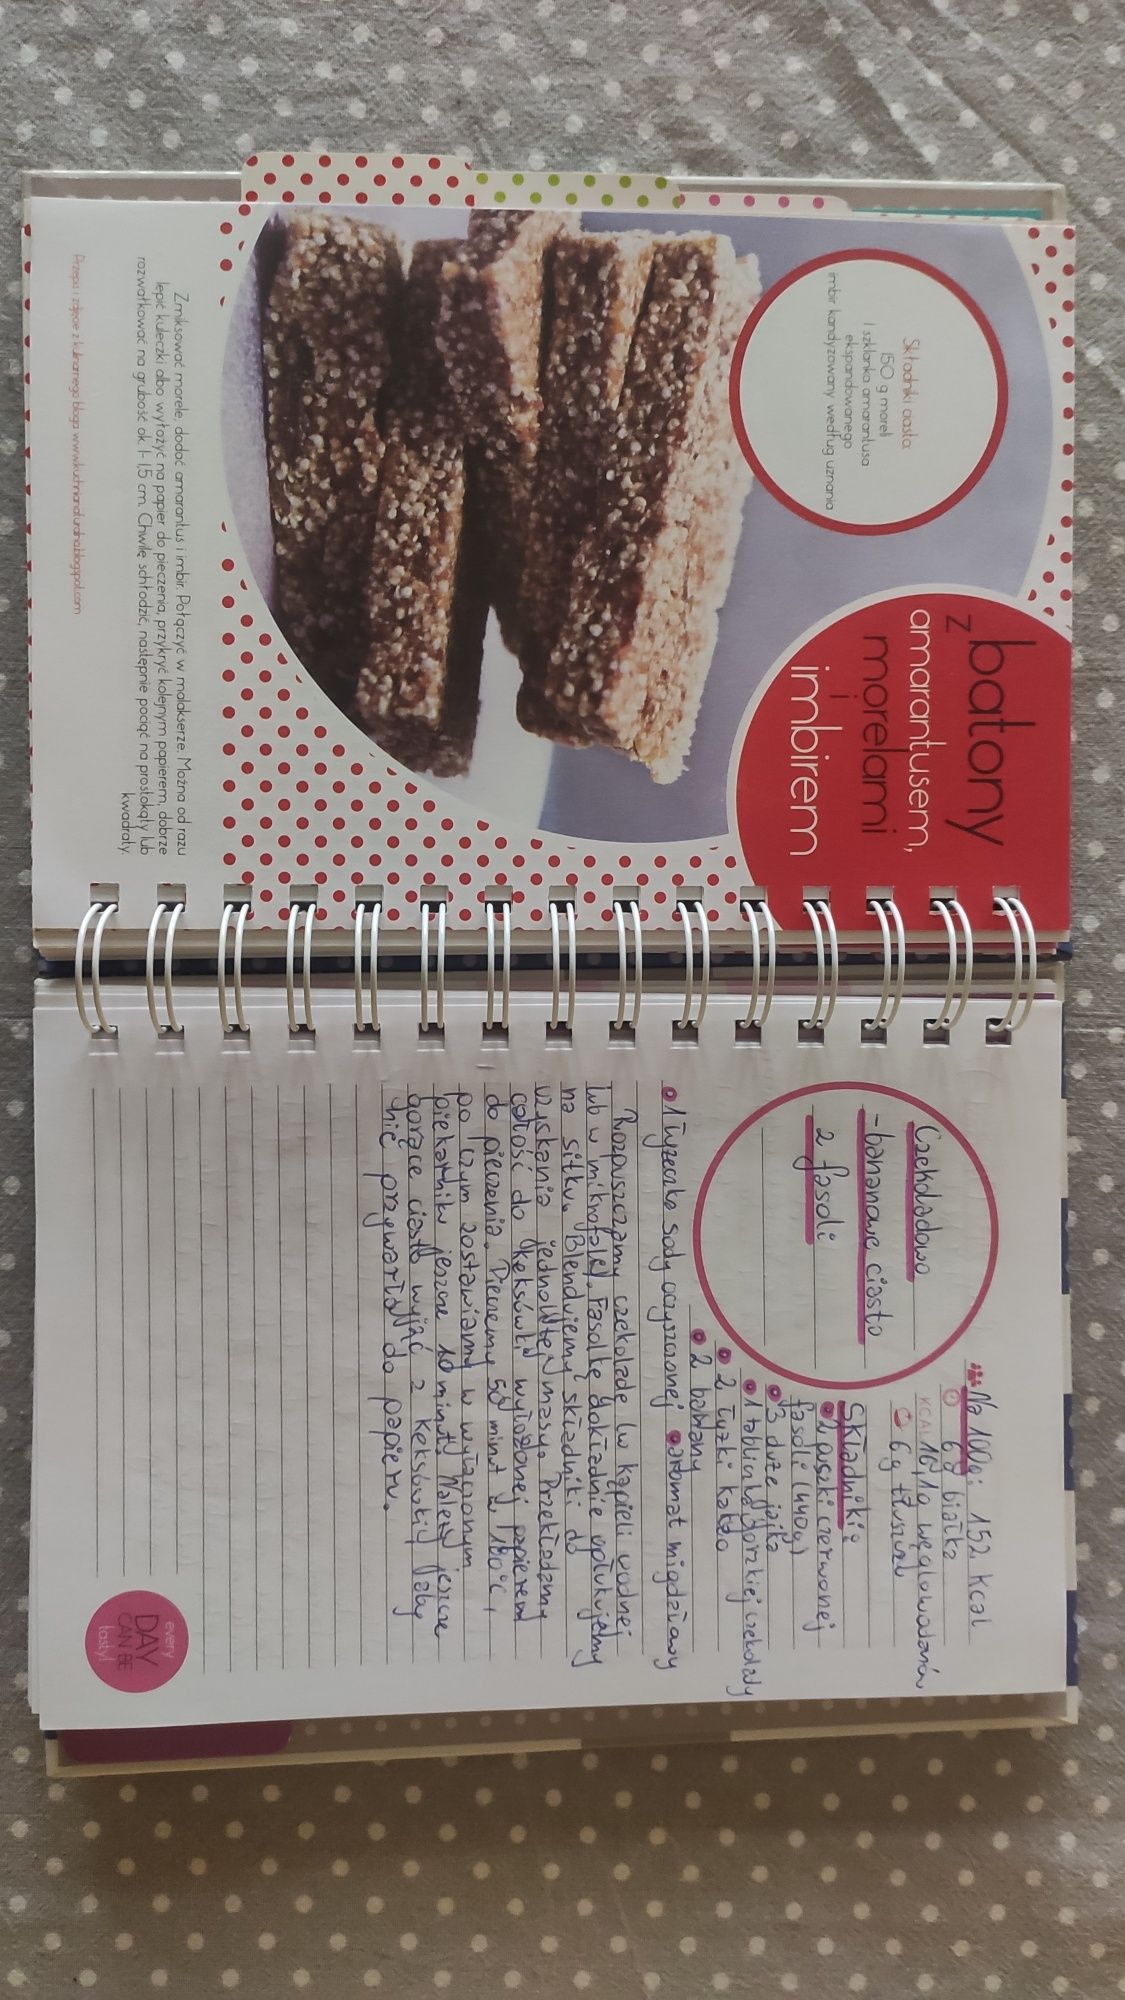 batony
z
amarantusem,
morelami
i
imbirem
Składniki ciasta:
150 g moreli
1 szklanka amarantusa
ekspandowanego
imbir kandyzowany według uznania
Zmiksować morele, dodać amarantus i imbir. Połączyć w malakserze. Można od razu
lepić kuleczki albo wyłożyć na papier do pieczenia, przykryć kolejnym papierem, dobrze
rozwałkować na grubość ok. 1-1,5 cm. Chwilę schłodzić, następnie pociąć na prostokąty lub
kwadraty.
Przepis i zdjęcie z kulinarnego bloga www.kuchnianaturalna.blogspot.com
Czekoladowo
-bananowe ciasto
z fasoli
Na 100g: 152 kcal
6g białka
KCAL 16,1g węglowodanów
6g tłuszczu
Składniki:
2 puszki czerwonej
fasoli (440g)
3 duże jajka
1 tabliczka gorzkiej czekolady
2 łyżki kakao
2 banany
1 łyżeczka sody oczyszczonej aromat migdałowy
Rozpuszczamy czekoladę (w kąpieli wodnej
lub w mikrofali). Fasolkę dokładnie opłukujemy
na sitku. Blendujemy składniki do
uzyskania jednolitej masy. Przekładamy
całość do keksówki wyłożonej papierem
do pieczenia. Pieczemy 50 minut w 180°C,
po czym zostawiamy w wyłączonym
piekarniku jeszcze 10 minut. Należy jeszcze
gorące ciasto wyjąć z keksówki, żeby
nie przywarło do papieru.
every
DAY
CAN BE
tasty!